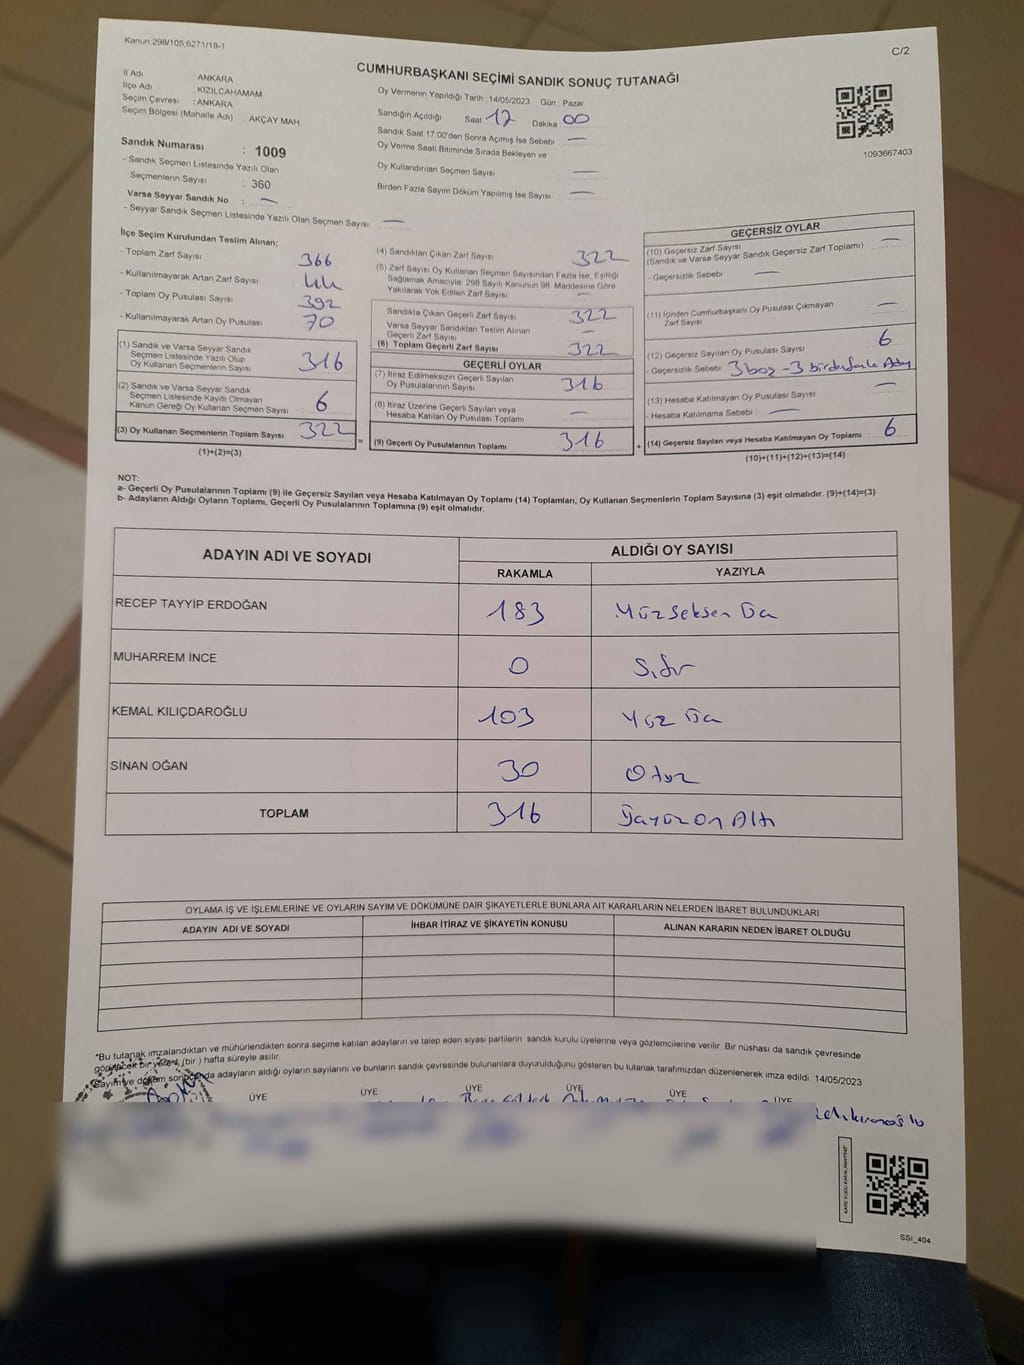 Kanun:298/105;6271/18-1
C/2
CUMHURBAŞKANI SEÇİMİ SANDIK SONUÇ TUTANAĞI
İl Adı : ANKARA
İlçe Adı : KIZILCAHAMAM
Seçim Çevresi : ANKARA
Seçim Bölgesi (Mahalle Adı) : AKÇAY MAH.
Sandık Numarası : 1009
- Sandık Seçmen Listesinde Yazılı Olan
Seçmenlerin Sayısı : 360
Varsa Seyyar Sandık No : —
- Seyyar Sandık Seçmen Listesinde Yazılı Olan Seçmen Sayısı: —
Oy Vermenin Yapıldığı Tarih :14/05/2023 Gün : Pazar
Sandığın Açıldığı Saat 17 Dakika 00
Sandık Saat 17:00'den Sonra Açımış İse Sebebi : —
Oy Verme Saati Bitiminde Sırada Bekleyen ve
Oy Kullandırılan Seçmen Sayısı —
Birden Fazla Sayım Döküm Yapılmış İse Sayısı : —
1093667403
İlçe Seçim Kurulundan Teslim Alınan;
- Toplam Zarf Sayısı 366
- Kullanılmayarak Artan Zarf Sayısı : 44
- Toplam Oy Pusulası Sayısı : 392
- Kullanılmayarak Artan Oy Pusulası : 70
(1) Sandık ve Varsa Seyyar Sandık
Seçmen Listesinde Yazılı Olup
Oy Kullanan Seçmen Sayısı : 316
(2) Sandık ve Varsa Seyyar Sandık
Seçmen Listesinde Kayıtlı Olmayan
Kanun Gereği Oy Kullanan Seçmen Sayısı : 6
(3) Oy Kullanan Seçmenlerin Toplam Sayısı : 322
(1)+(2)=(3)
=
(4) Sandıktan Çıkan Zarf Sayısı 322
(5) Zarf Sayısı Oy Kullanan Seçmen Sayısından Fazla İse, Eşitliği
Sağlamak Amacıyla, 298 Sayılı Kanunun 98. Maddesine Göre
Yakılarak Yok Edilen Zarf Sayısı —
Sandıkta Çıkan Geçerli Zarf Sayısı : 322
Varsa Seyyar Sandıktan Teslim Alınan
Geçerli Zarf Sayısı —
(6) Toplam Geçerli Zarf Sayısı 322
GEÇERLİ OYLAR
(7) İtiraz Edilmeksizin Geçerli Sayılan
Oy Pusulalarının Sayısı : 316
(8) İtiraz Üzerine Geçerli Sayılan veya
Hesaba Katılan Oy Pusulası Toplamı : —
(9) Geçerli Oy Pusulalarının Toplamı : 316
+
GEÇERSİZ OYLAR
(10) Geçersiz Zarf Sayısı —
(Sandık ve Varsa Seyyar Sandık Geçersiz Zarf Toplamı)
- Geçersizlik Sebebi : —
(11) İçinden Cumhurbaşkanı Oy Pusulası Çıkmayan
Zarf Sayısı —
(12) Geçersiz Sayılan Oy Pusulası Sayısı 6
- Geçersizlik Sebebi : 3 boş - 3 birdenfazla Aday
(13) Hesaba Katılmayan Oy Pusulası Sayısı —
- Hesaba Katılmama Sebebi : —
(14) Geçersiz Sayılan veya Hesaba Katılmayan Oy Toplamı : 6
(10)+(11)+(12)+(13)=(14)
NOT:
a- Geçerli Oy Pusulalarının Toplamı (9) ile Geçersiz Sayılan veya Hesaba Katılmayan Oy Toplamı (14) Toplamları, Oy Kullanan Seçmenlerin Toplam Sayısına (3) eşit olmalıdır. (9)+(14)=(3)
b- Adayların Aldığı Oyların Toplamı, Geçerli Oy Pusulalarının Toplamına (9) eşit olmalıdır.
ADAYIN ADI VE SOYADI
ALDIĞI OY SAYISI
RAKAMLA YAZIYLA
RECEP TAYYİP ERDOĞAN 183 Yüzseksen Üç
MUHARREM İNCE 0 Sıfır
KEMAL KILIÇDAROĞLU 103 Yüz Üç
SİNAN OĞAN 30 Otuz
TOPLAM 316 Üçyüz On Altı
OYLAMA İŞ VE İŞLEMLERİNE VE OYLARIN SAYIM VE DÖKÜMÜNE DAİR ŞİKAYETLERLE BUNLARA AİT KARARLARIN NELERDEN İBARET BULUNDUKLARI
ADAYIN ADI VE SOYADI İHBAR İTİRAZ VE ŞİKAYETİN KONUSU ALINAN KARARIN NEDEN İBARET OLDUĞU
*Bu tutanak imzalandıktan ve mühürlendikten sonra seçime katılan adayların ve talep eden siyasi partilerin sandık kurulu üyelerine veya gözlemcilerine verilir. Bir nüshası da sandık çevresinde
görülecek bir yere 1 (bir) hafta süreyle asılır.
Sayım ve döküm sonucunda adayların aldığı oyların sayılarını ve bunların sandık çevresinde bulunanlara duyurulduğunu gösteren bu tutanak tarafımızdan düzenlenerek imza edildi. 14/05/2023
ÜYE ÜYE ÜYE ÜYE ÜYE ÜYE
KARE KODU KAPALAMAYINIZ
SSI_404